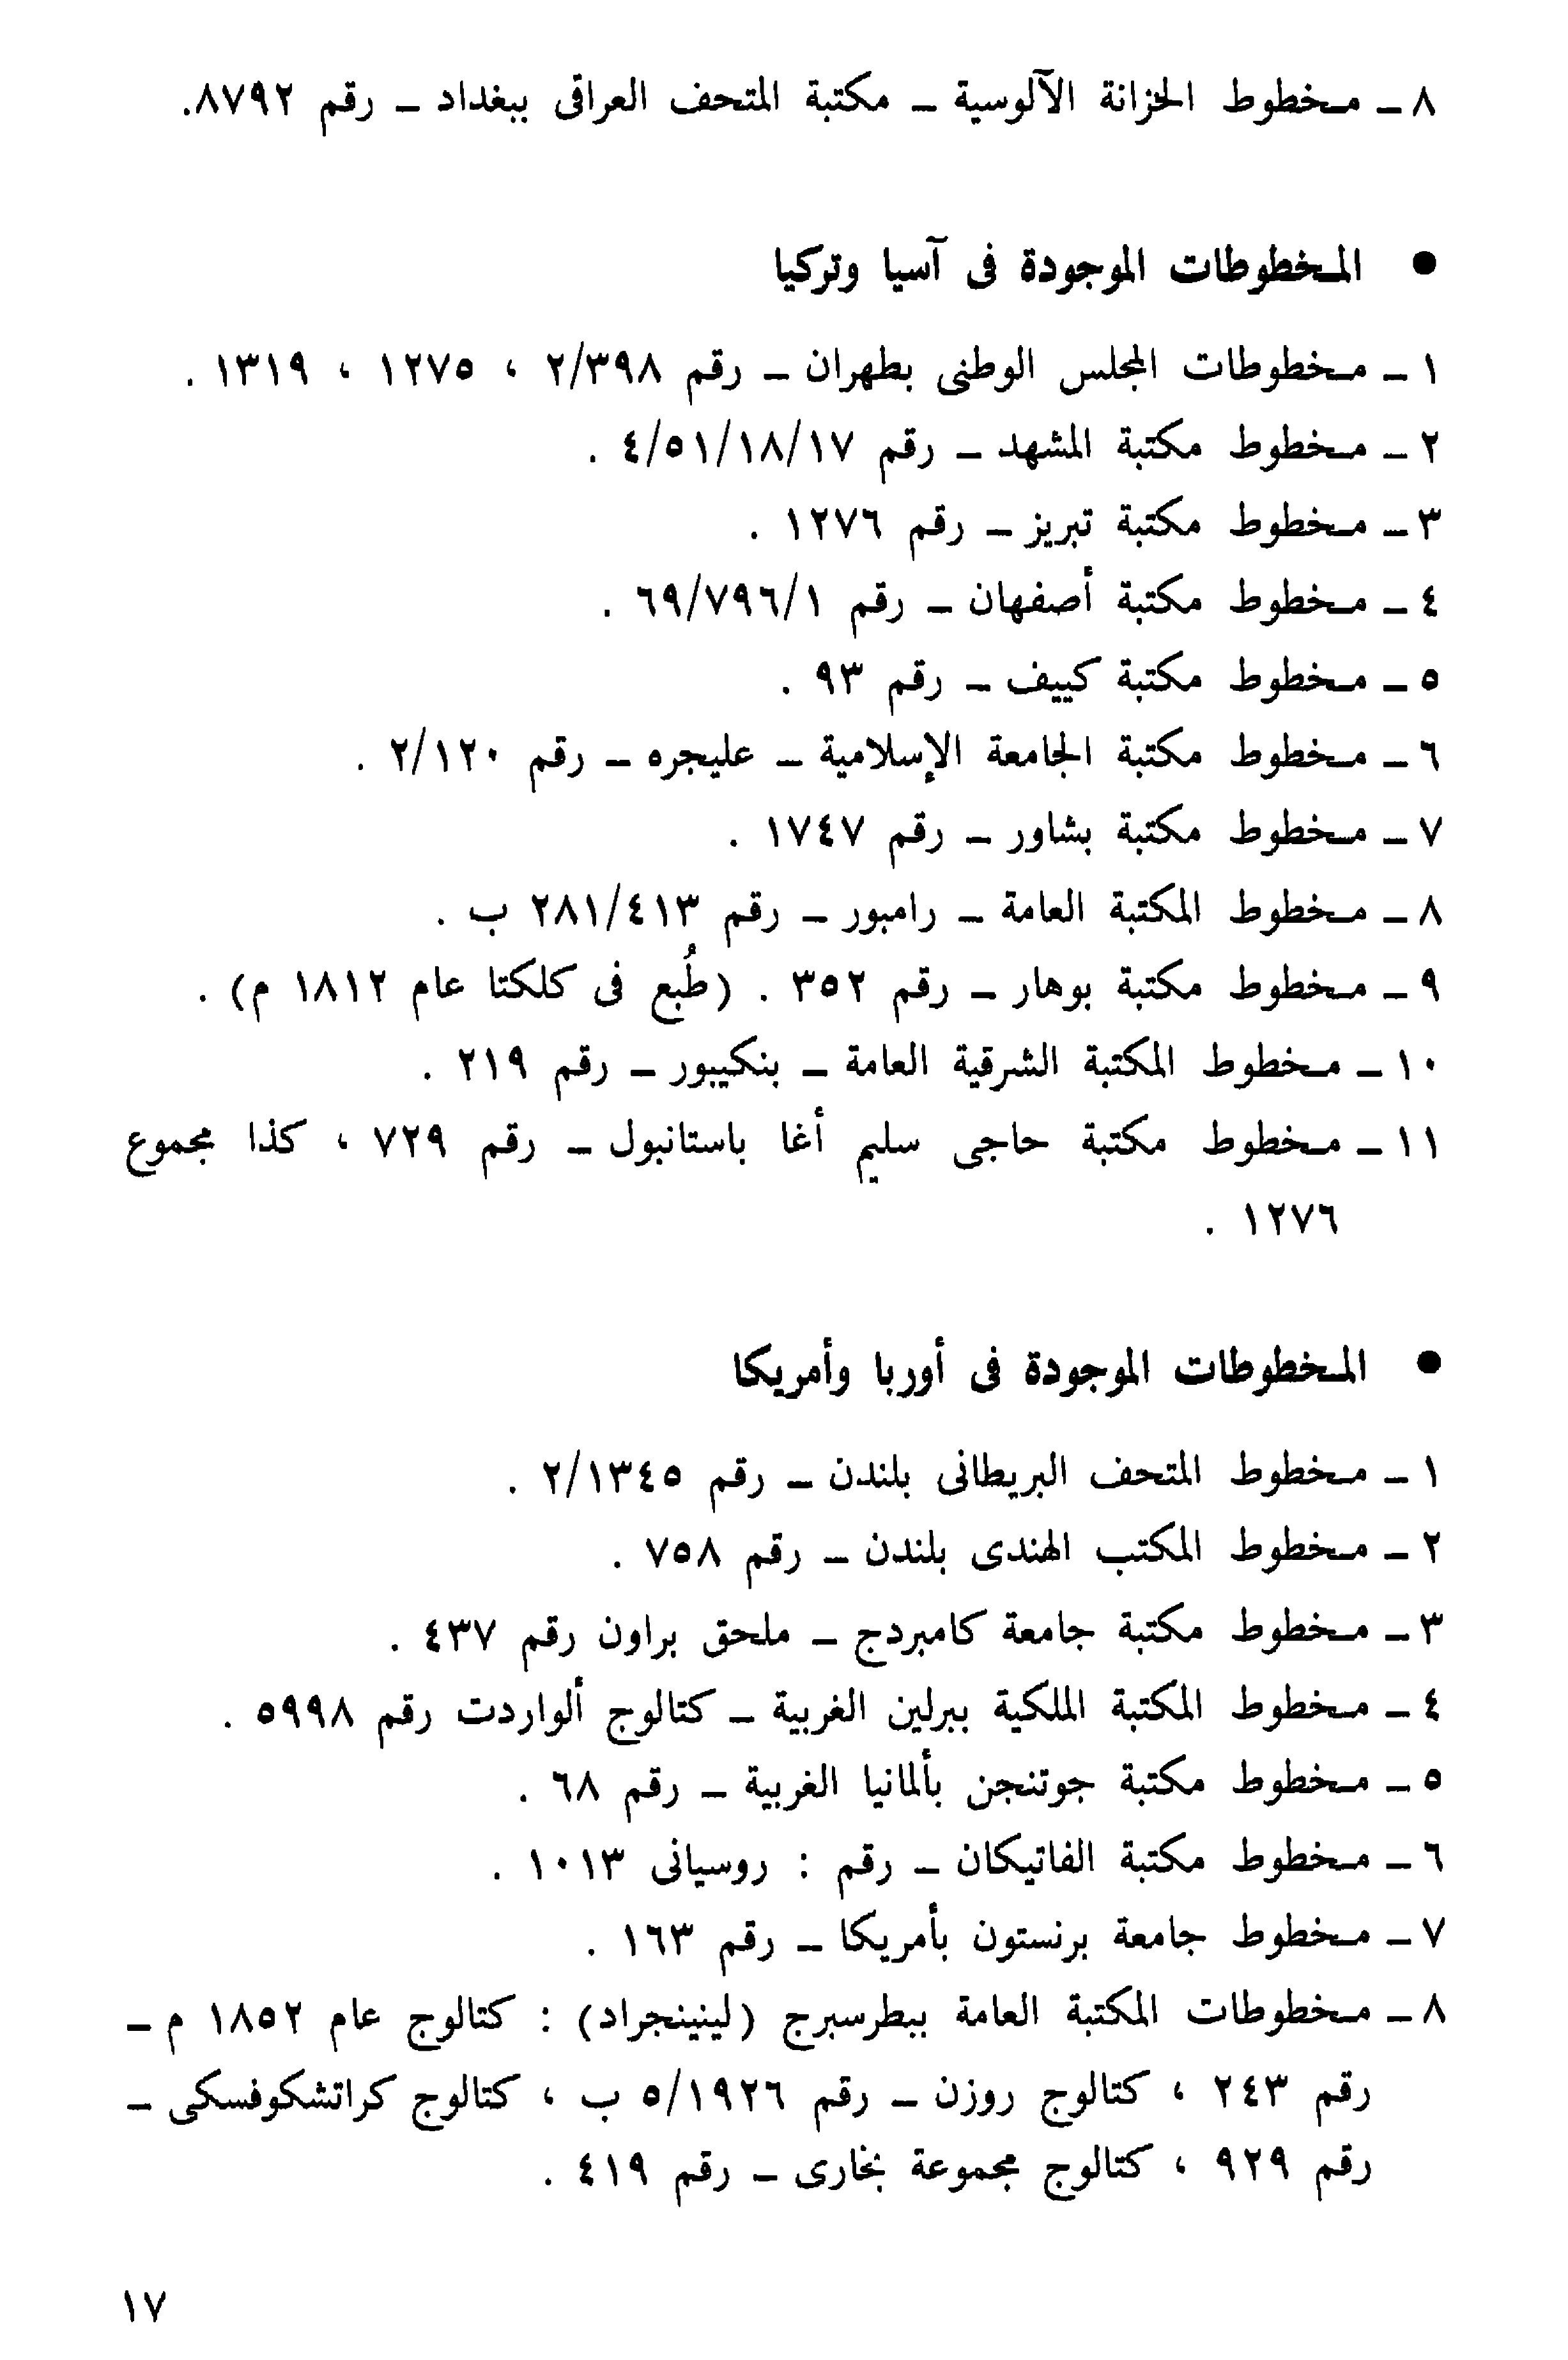 ٨ ـ مخطوط الخزانة الآلوسية ـ مكتبة المتحف العراقى ببغداد ـ رقم ٨٧٩٢.
● المخطوطات الموجودة فى آسيا وتركيا
١ ـ مخطوطات المجلس الوطنى بطهران ـ رقم ٢/٣٩٨ ، ١٢٧٥ ، ١٣١٩ .
٢ ـ مخطوط مكتبة المشهد ـ رقم ٤/٥١/١٨/١٧ .
٣ ـ مخطوط مكتبة تبريز ـ رقم ١٢٧٦ .
٤ ـ مخطوط مكتبة أصفهان ـ رقم ٦٩/٧٩٦/١ .
٥ ـ مخطوط مكتبة كييف ـ رقم ٩٣ .
٦ ـ مخطوط مكتبة الجامعة الإسلامية ـ عليجره ـ رقم ٢/١٢٠ .
٧ ـ مخطوط مكتبة بشاور ـ رقم ١٧٤٧ .
٨ ـ مخطوط المكتبة العامة ـ رامبور ـ رقم ٢٨١/٤١٣ ب .
٩ ـ مخطوط مكتبة بوهار ـ رقم ٣٥٢ . (طُبع فى كلكتا عام ١٨١٢ م) .
١٠ ـ مخطوط المكتبة الشرقية العامة ـ بنكيبور ـ رقم ٢١٩ .
١١ ـ مخطوط مكتبة حاجى سليم أغا باستانبول ـ رقم ٧٢٩ ، كذا مجموع
١٢٧٦ .
● المخطوطات الموجودة فى أوربا وأمريكا
١ ـ مخطوط المتحف البريطانى بلندن ـ رقم ٢/١٣٤٥ .
٢ ـ مخطوط المكتب الهندى بلندن ـ رقم ٧٥٨ .
٣ ـ مخطوط مكتبة جامعة كامبردج ـ ملحق براون رقم ٤٣٧ .
٤ ـ مخطوط المكتبة الملكية ببرلين الغربية ـ كتالوج ألواردت رقم ٥٩٩٨ .
٥ ـ مخطوط مكتبة جوتنجن بألمانيا الغربية ـ رقم ٦٨ .
٦ ـ مخطوط مكتبة الفاتيكان ـ رقم : روسيانى ١٠١٣ .
٧ ـ مخطوط جامعة برنستون بأمريكا ـ رقم ١٦٣ .
٨ ـ مخطوطات المكتبة العامة ببطرسبرج (لينينجراد) : كتالوج عام ١٨٥٢ م ـ
رقم ٢٤٣ ، كتالوج روزن ـ رقم ٥/١٩٢٦ ب ، كتالوج كراتشكوفسكى ـ
رقم ٩٢٩ ، كتالوج مجموعة بخارى ـ رقم ٤١٩ .
١٧